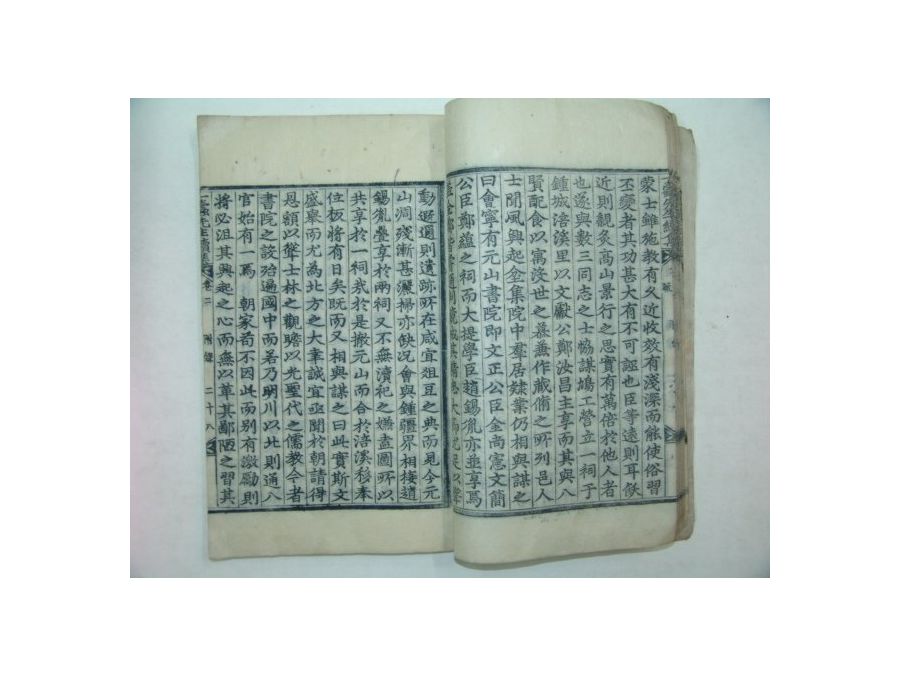 蒙士雖施教有久近收效有淺深而能使俗習
丕變者其功甚大有不可誣也臣等遠則耳飫
近則親炙高山景行之思實有萬倍於他人者
也遂與數三同志之士恊謀鳩工營立一祠于
鍾城涪溪里以文獻公鄭汝昌主享而其與八
賢配食以寓沒世之慕兼作藏脩之所列邑人
士聞風興起坌集院中羣居隷業仍相與謀之
曰會寧有元山書院即文正公臣金尚憲文簡
公臣鄭蘊之祠而大提學臣趙錫胤亦並享焉
動遐邇則遺跡所在咸宜俎豆之典而見今元
山洞殘漸甚灑掃亦缺况會與鍾疆界相接趙
錫胤疊享於兩祠又不無瀆祀之嫌盍圖所以
共享於一祠我於是撤元山而合於涪溪移奉
位板將有日矣既而又相與謀之曰此實斯文
盛擧而尤為北方之大幸誠宜亟聞於朝請得
恩額以聳士林之觀瞻以光聖代之儒教今者
書院之設殆遍國中而若乃明川以北則通八
官始有一焉 朝家苟不因此而別有激勵則
將必沮其興起之心而無以革其鄙陋之習其
先生續集 卷二 附錄 二十八